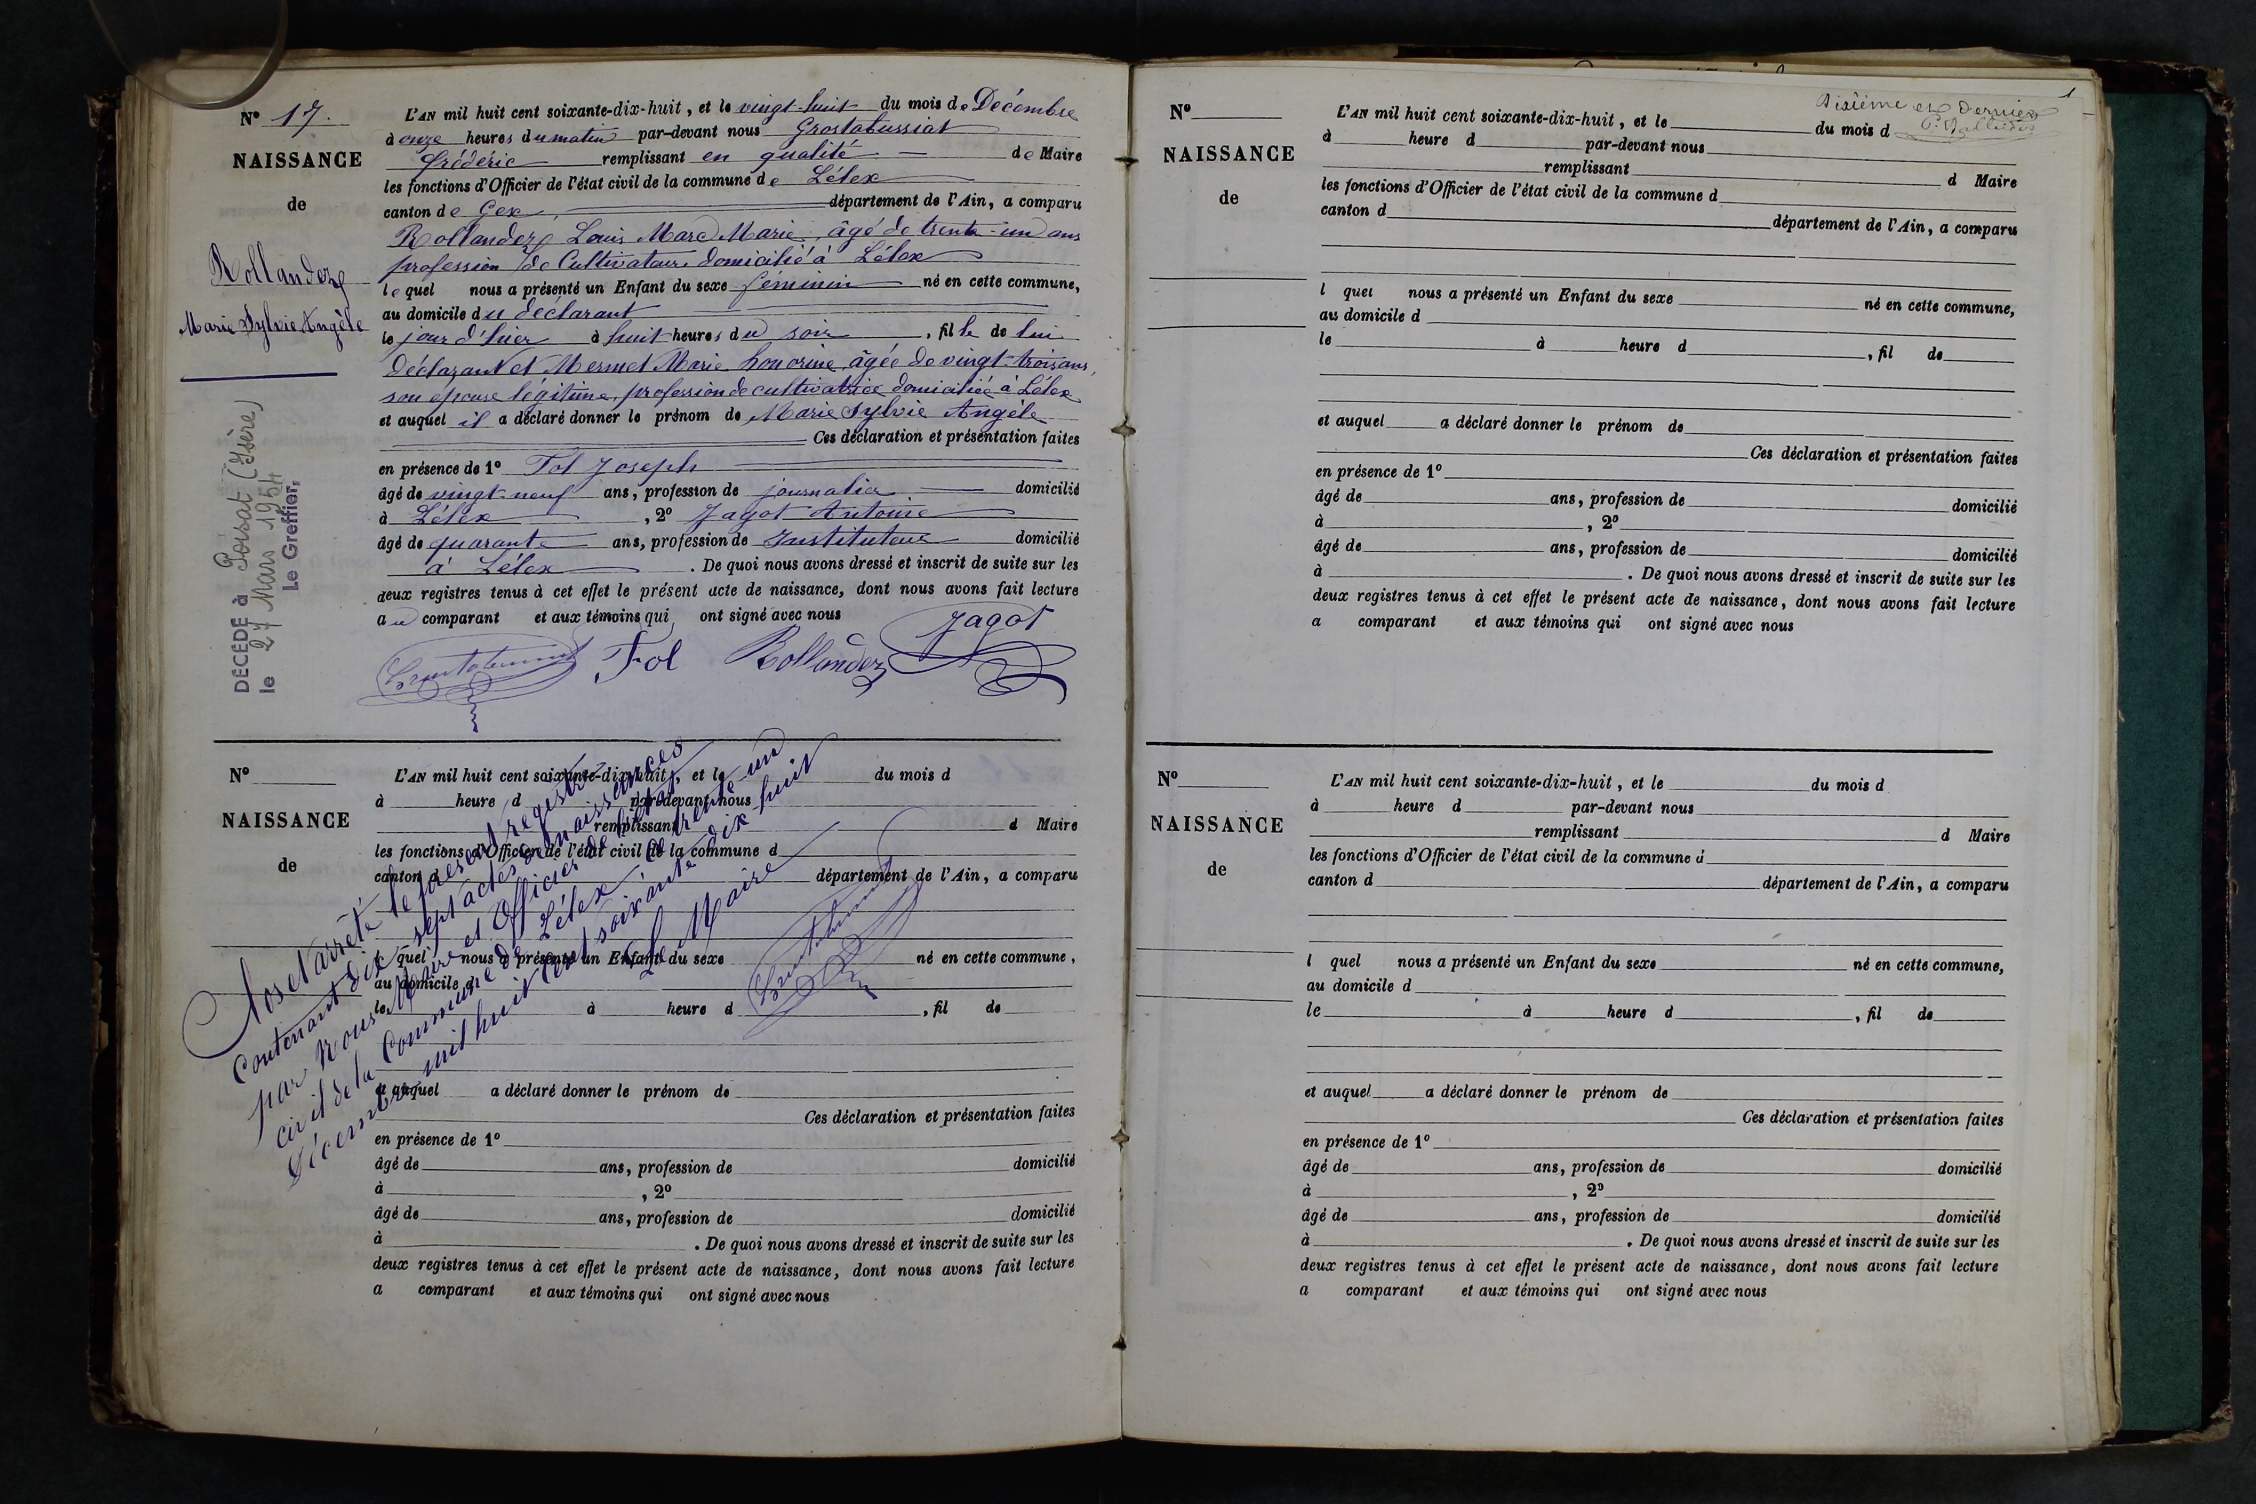 Nº 17.
NAISSANCE
de
Rollandez
Marie Sylvie Angèle
DÉCÉDÉ à Poisat (Isère)
le 27 Mars 1954
Le Greffier,
L'AN mil huit cent soixante-dix-huit, et le vingt-huit du mois de Décembre
à onze heures du matin par-devant nous Grostabussiat
Frédéric remplissant en qualité de Maire
les fonctions d'Officier de l'état civil de la commune de Lélex
canton de Gex, département de l'Ain, a comparu
Rollandez Louis Marc Marie, âgé de trente-un ans
profession de Cultivateur domicilié à Lélex
lequel nous a présenté un Enfant du sexe féminin né en cette commune,
au domicile du déclarant
le jour d'hier à huit heures du soir, fille de lui
déclarant et Mermet Marie honorine, âgée de vingt-trois ans,
son épouse légitime, profession de cultivatrice domiciliée à Lélex
et auquel il a déclaré donner le prénom de Marie Sylvie Angèle
Ces déclaration et présentation faites
en présence de 1º Fol Joseph
âgé de vingt-neuf ans, profession de journalier domicilié
à Lélex, 2º Jagot Antoine
âgé de quarante ans, profession de Instituteur domicilié
à Lélex. De quoi nous avons dressé et inscrit de suite sur les
deux registres tenus à cet effet le présent acte de naissance, dont nous avons fait lecture
au comparant et aux témoins qui ont signé avec nous
Fol Rollandez Jagot
Nº
NAISSANCE
de
L'AN mil huit cent soixante-dix-huit, et le du mois d
à heure d par-devant nous
remplissant d Maire
les fonctions d'Officier de l'état civil de la commune d
canton d département de l'Ain, a comparu
l quel nous a présenté un Enfant du sexe né en cette commune,
au domicile d
le à heure d , fil de
et auquel a déclaré donner le prénom de
Ces déclaration et présentation faites
en présence de 1º
âgé de ans, profession de domicilié
à , 2º
âgé de ans, profession de domicilié
à . De quoi nous avons dressé et inscrit de suite sur les
deux registres tenus à cet effet le présent acte de naissance, dont nous avons fait lecture
a comparant et aux témoins qui ont signé avec nous
Clos et arrêté le présent registre
contenant dix sept actes de naissances
par Nous Maire et Officier de l'état
civil de la Commune de Lélex, ce trente un
Décembre mil huit cent soixante dix huit
Le Maire
Dixième et Dernier
1
Nº
NAISSANCE
de
L'AN mil huit cent soixante-dix-huit, et le du mois d
à heure d par-devant nous
remplissant d Maire
les fonctions d'Officier de l'état civil de la commune d
canton d département de l'Ain, a comparu
l quel nous a présenté un Enfant du sexe né en cette commune,
au domicile d
le à heure d , fil de
et auquel a déclaré donner le prénom de
Ces déclaration et présentation faites
en présence de 1º
âgé de ans, profession de domicilié
à , 2º
âgé de ans, profession de domicilié
à . De quoi nous avons dressé et inscrit de suite sur les
deux registres tenus à cet effet le présent acte de naissance, dont nous avons fait lecture
a comparant et aux témoins qui ont signé avec nous
Nº
NAISSANCE
de
L'AN mil huit cent soixante-dix-huit, et le du mois d
à heure d par-devant nous
remplissant d Maire
les fonctions d'Officier de l'état civil de la commune d
canton d département de l'Ain, a comparu
l quel nous a présenté un Enfant du sexe né en cette commune,
au domicile d
le à heure d , fil de
et auquel a déclaré donner le prénom de
Ces déclaration et présentation faites
en présence de 1º
âgé de ans, profession de domicilié
à , 2º
âgé de ans, profession de domicilié
à . De quoi nous avons dressé et inscrit de suite sur les
deux registres tenus à cet effet le présent acte de naissance, dont nous avons fait lecture
a comparant et aux témoins qui ont signé avec nous